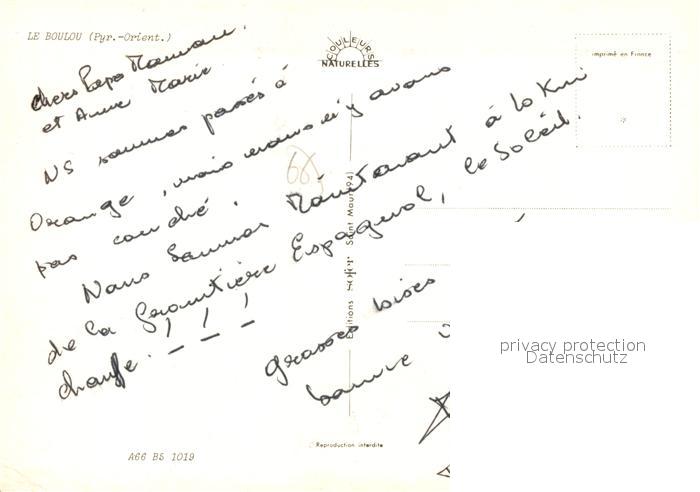 LE BOULOU (Pyr.-Orient.)
COULEURS
NATURELLES
imprimé en France
chers Papa Maman.
et Anne Marie
NS sommes passés à
Orange, mais nous n'y avons
pas couché.
Nous sommes Maintenant à 10 Km
de la Frontière Espagnol, le Soleil
chauffe. !!!
grosses bises
66
Editions SOFER Saint Maur (94)
privacy protection
Datenschutz
Reproduction interdite
A66 BS 1019